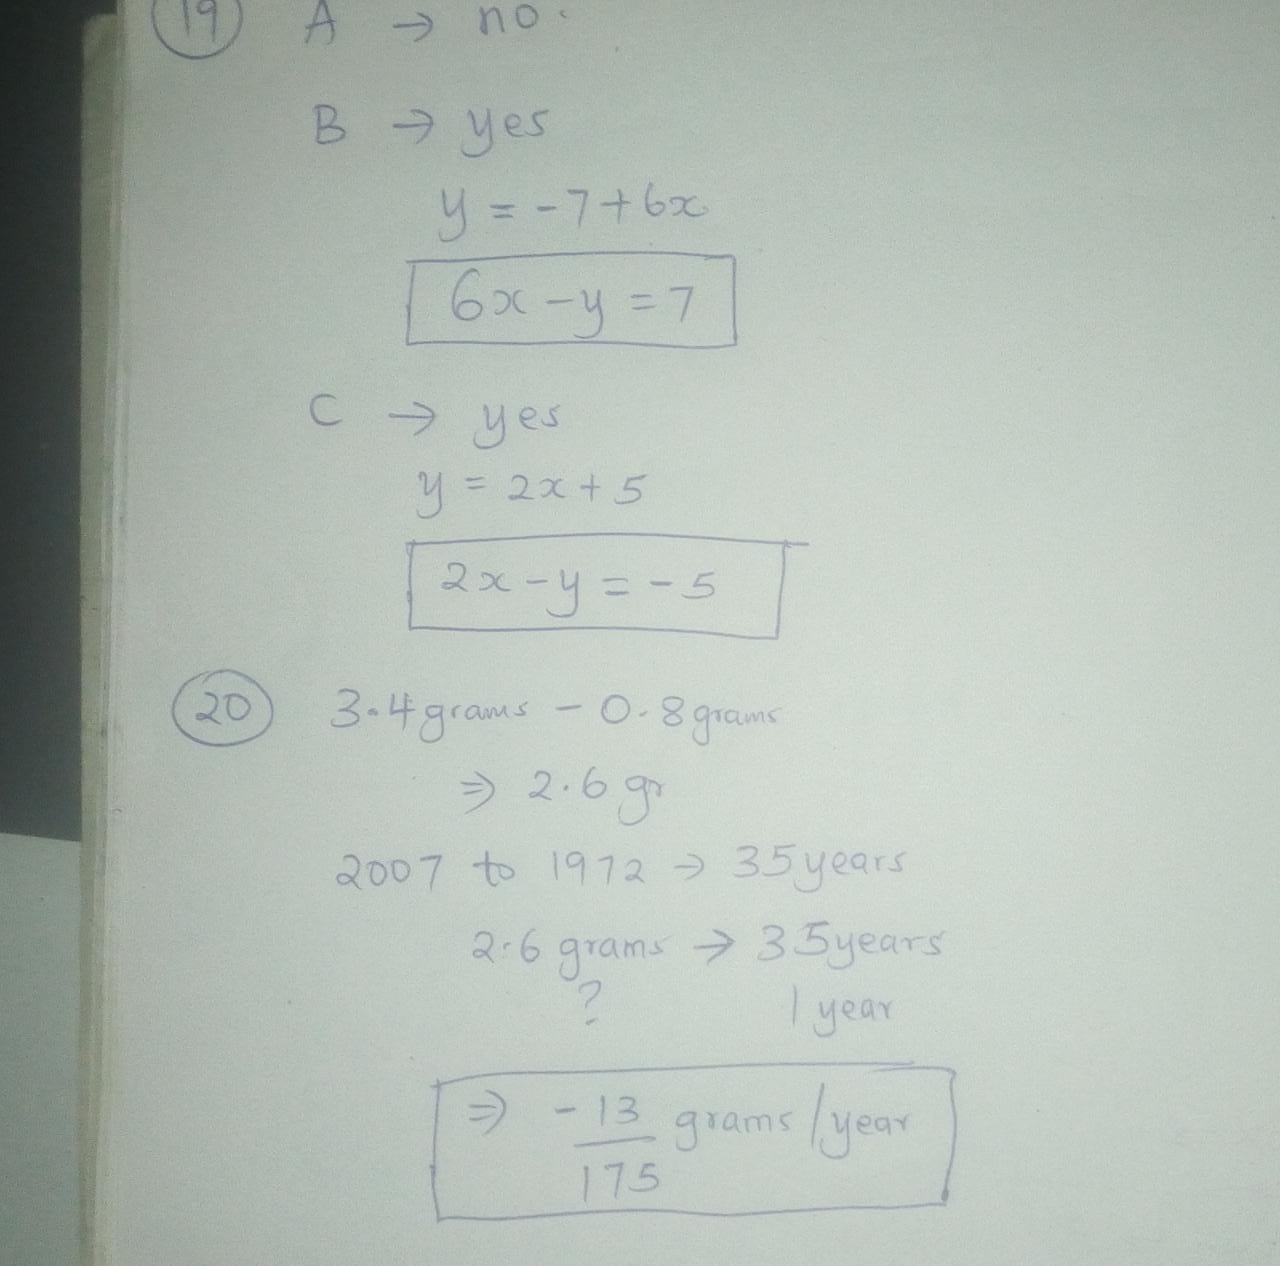 19 A → no.
B → yes
y = -7+6x
6x - y = 7
C → yes
y = 2x + 5
2x - y = -5
20 3.4 grams - 0.8 grams
⇒ 2.6 gr
2007 to 1972 → 35 years
2.6 grams → 35 years
? 1 year
⇒ -13/175 grams/year